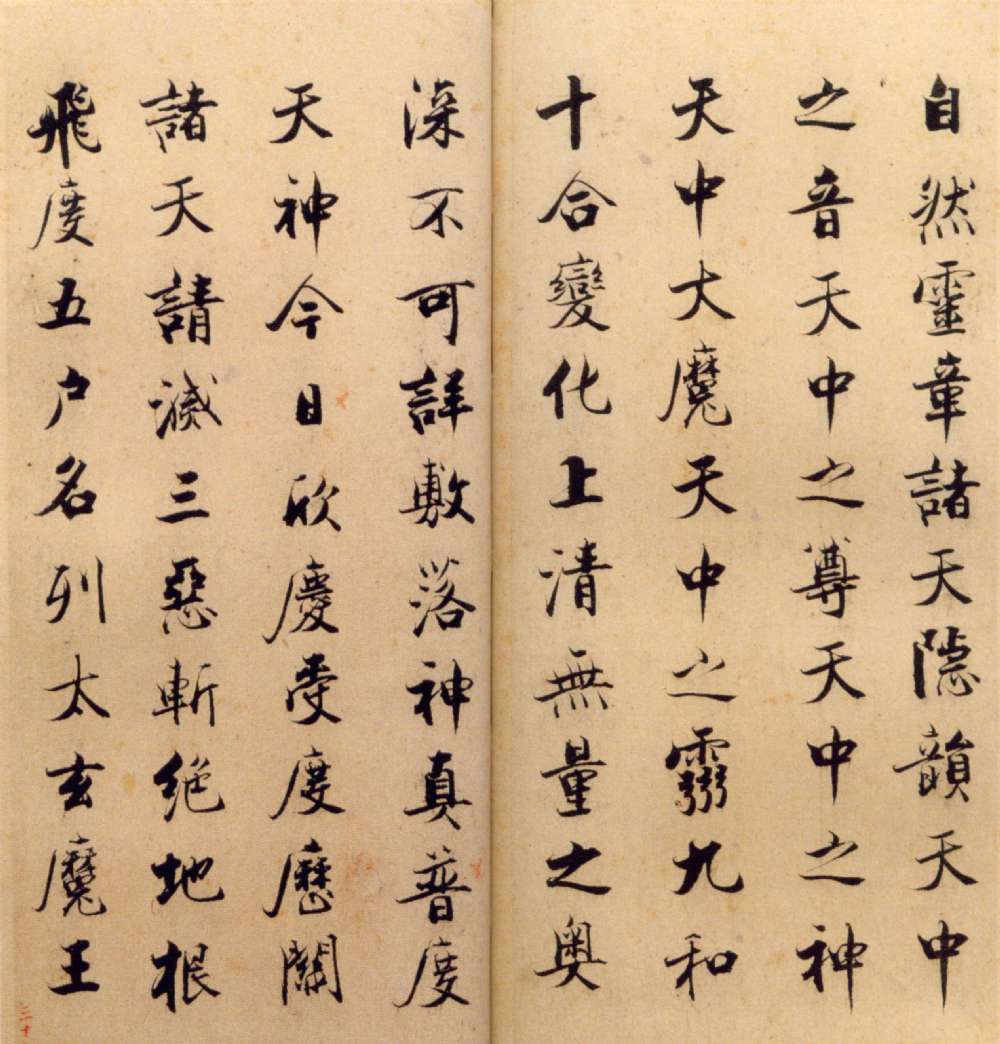 自然靈章諸天隱韻天中
之音天中之尊天中之神
天中大魔天中之靈九和
十合變化上清無量之奧
深不可詳敷落神真普度
天神今日欣慶受度歷關
諸天請滅三惡斬絕地根
飛度五户名列太玄魔王
三十